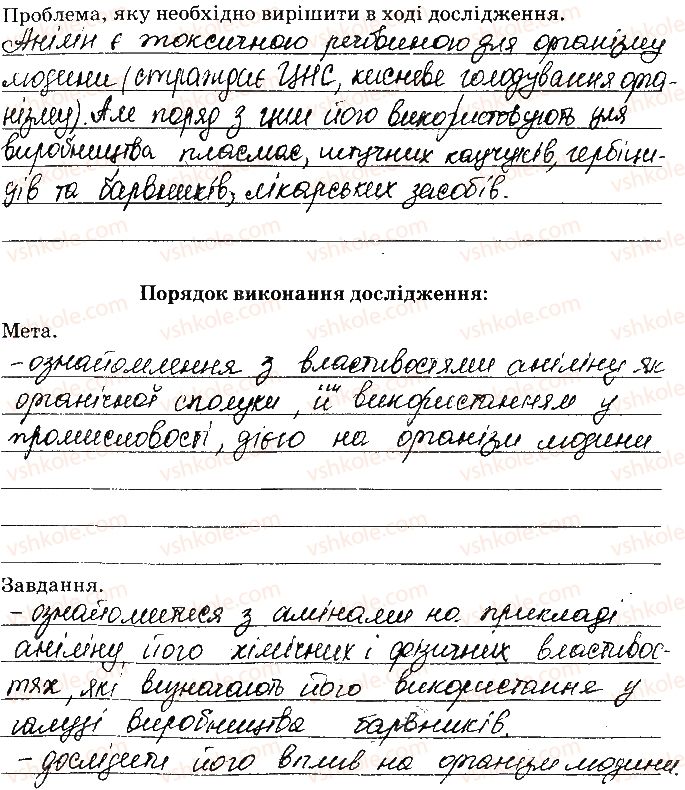 Проблема, яку необхідно вирішити в ході дослідження.
Анілін є токсичною речовиною для організму
людини (страждає ЦНС, кисневе голодування орга-
нізму). Але поряд з цим його використовують для
виробництва пласмас, штучних каучуків, гербіци-
дів та барвників, лікарських засобів.
Порядок виконання дослідження:
Мета.
- ознайомлення з властивостями аніліну як
органічної сполуки, її використанням у
промисловості, дією на організм людини
Завдання.
- ознайомитися з амінами на прикладі
аніліну, його хімічних і фізичних властивос-
тях, які визначають його використання у
галузі виробництва барвників.
- дослідити його вплив на організм людини.